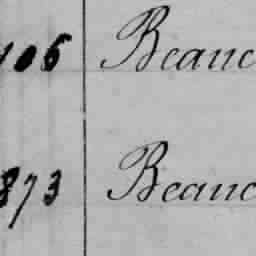 106 Beauc
873 Beauc